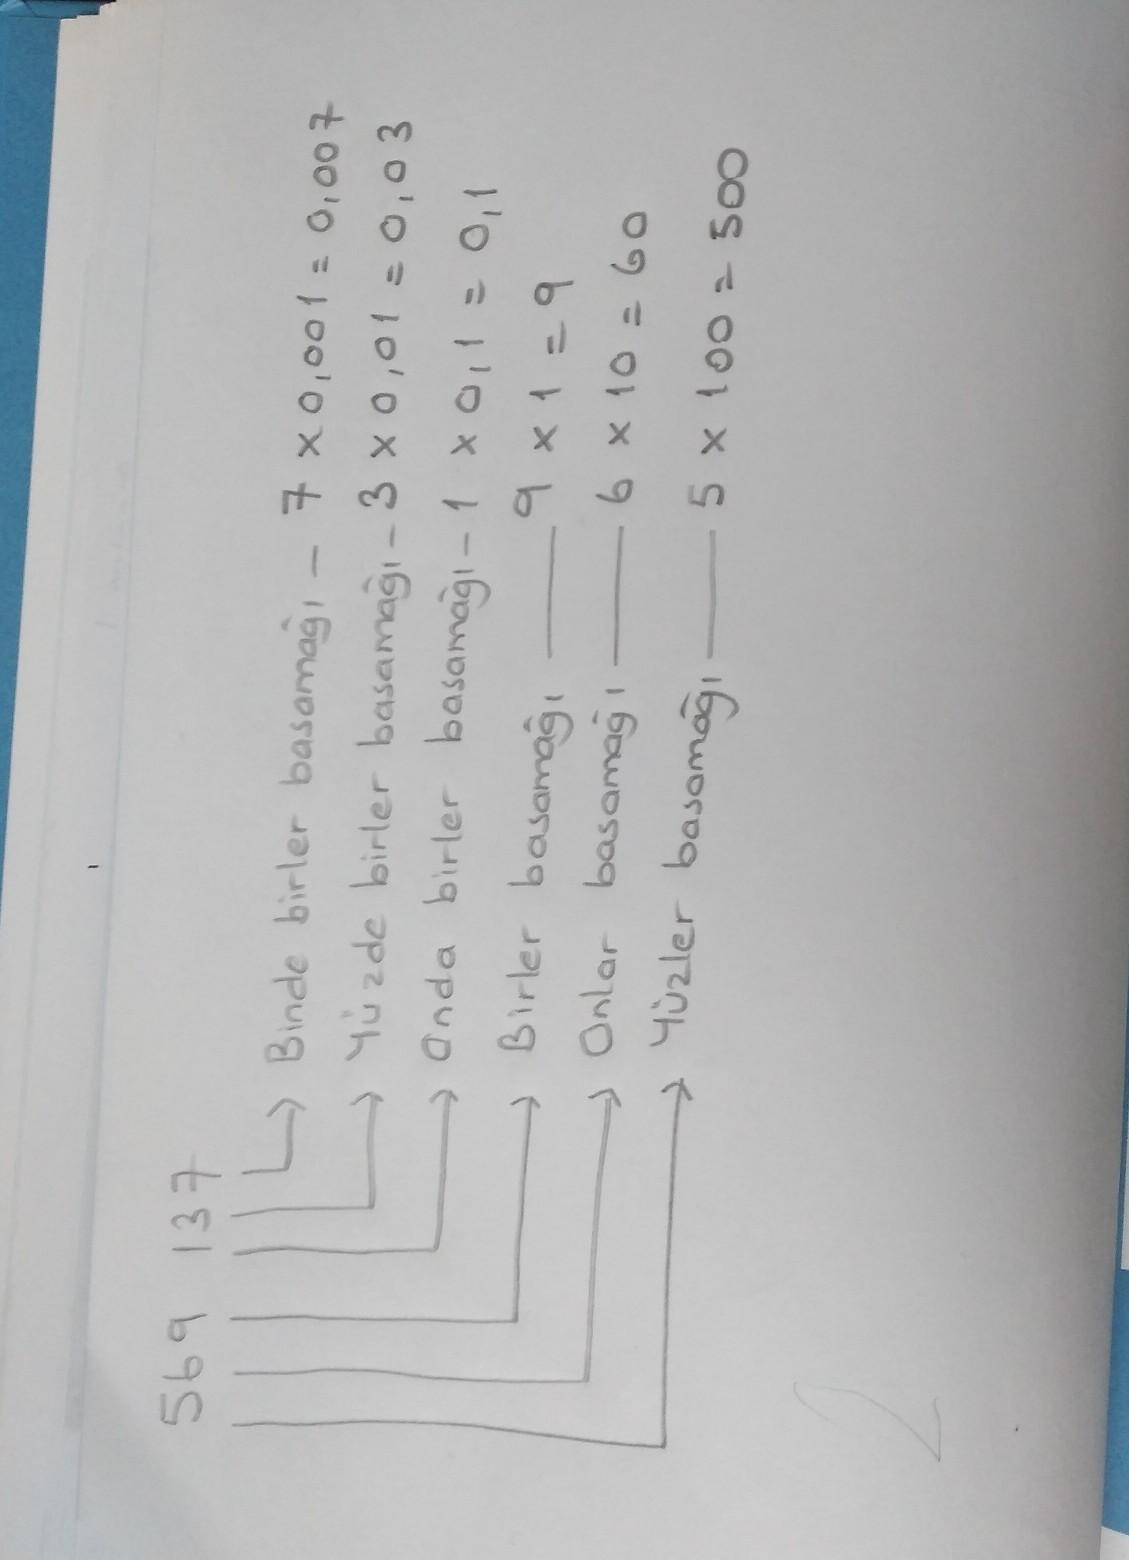 569 137
Binde birler basamağı - 7 x 0,001 = 0,007
Yüzde birler basamağı - 3 x 0,01 = 0,03
Onda birler basamağı - 1 x 0,1 = 0,1
Birler basamağı — 9 x 1 = 9
Onlar basamağı — 6 x 10 = 60
Yüzler basamağı — 5 x 100 = 500
2